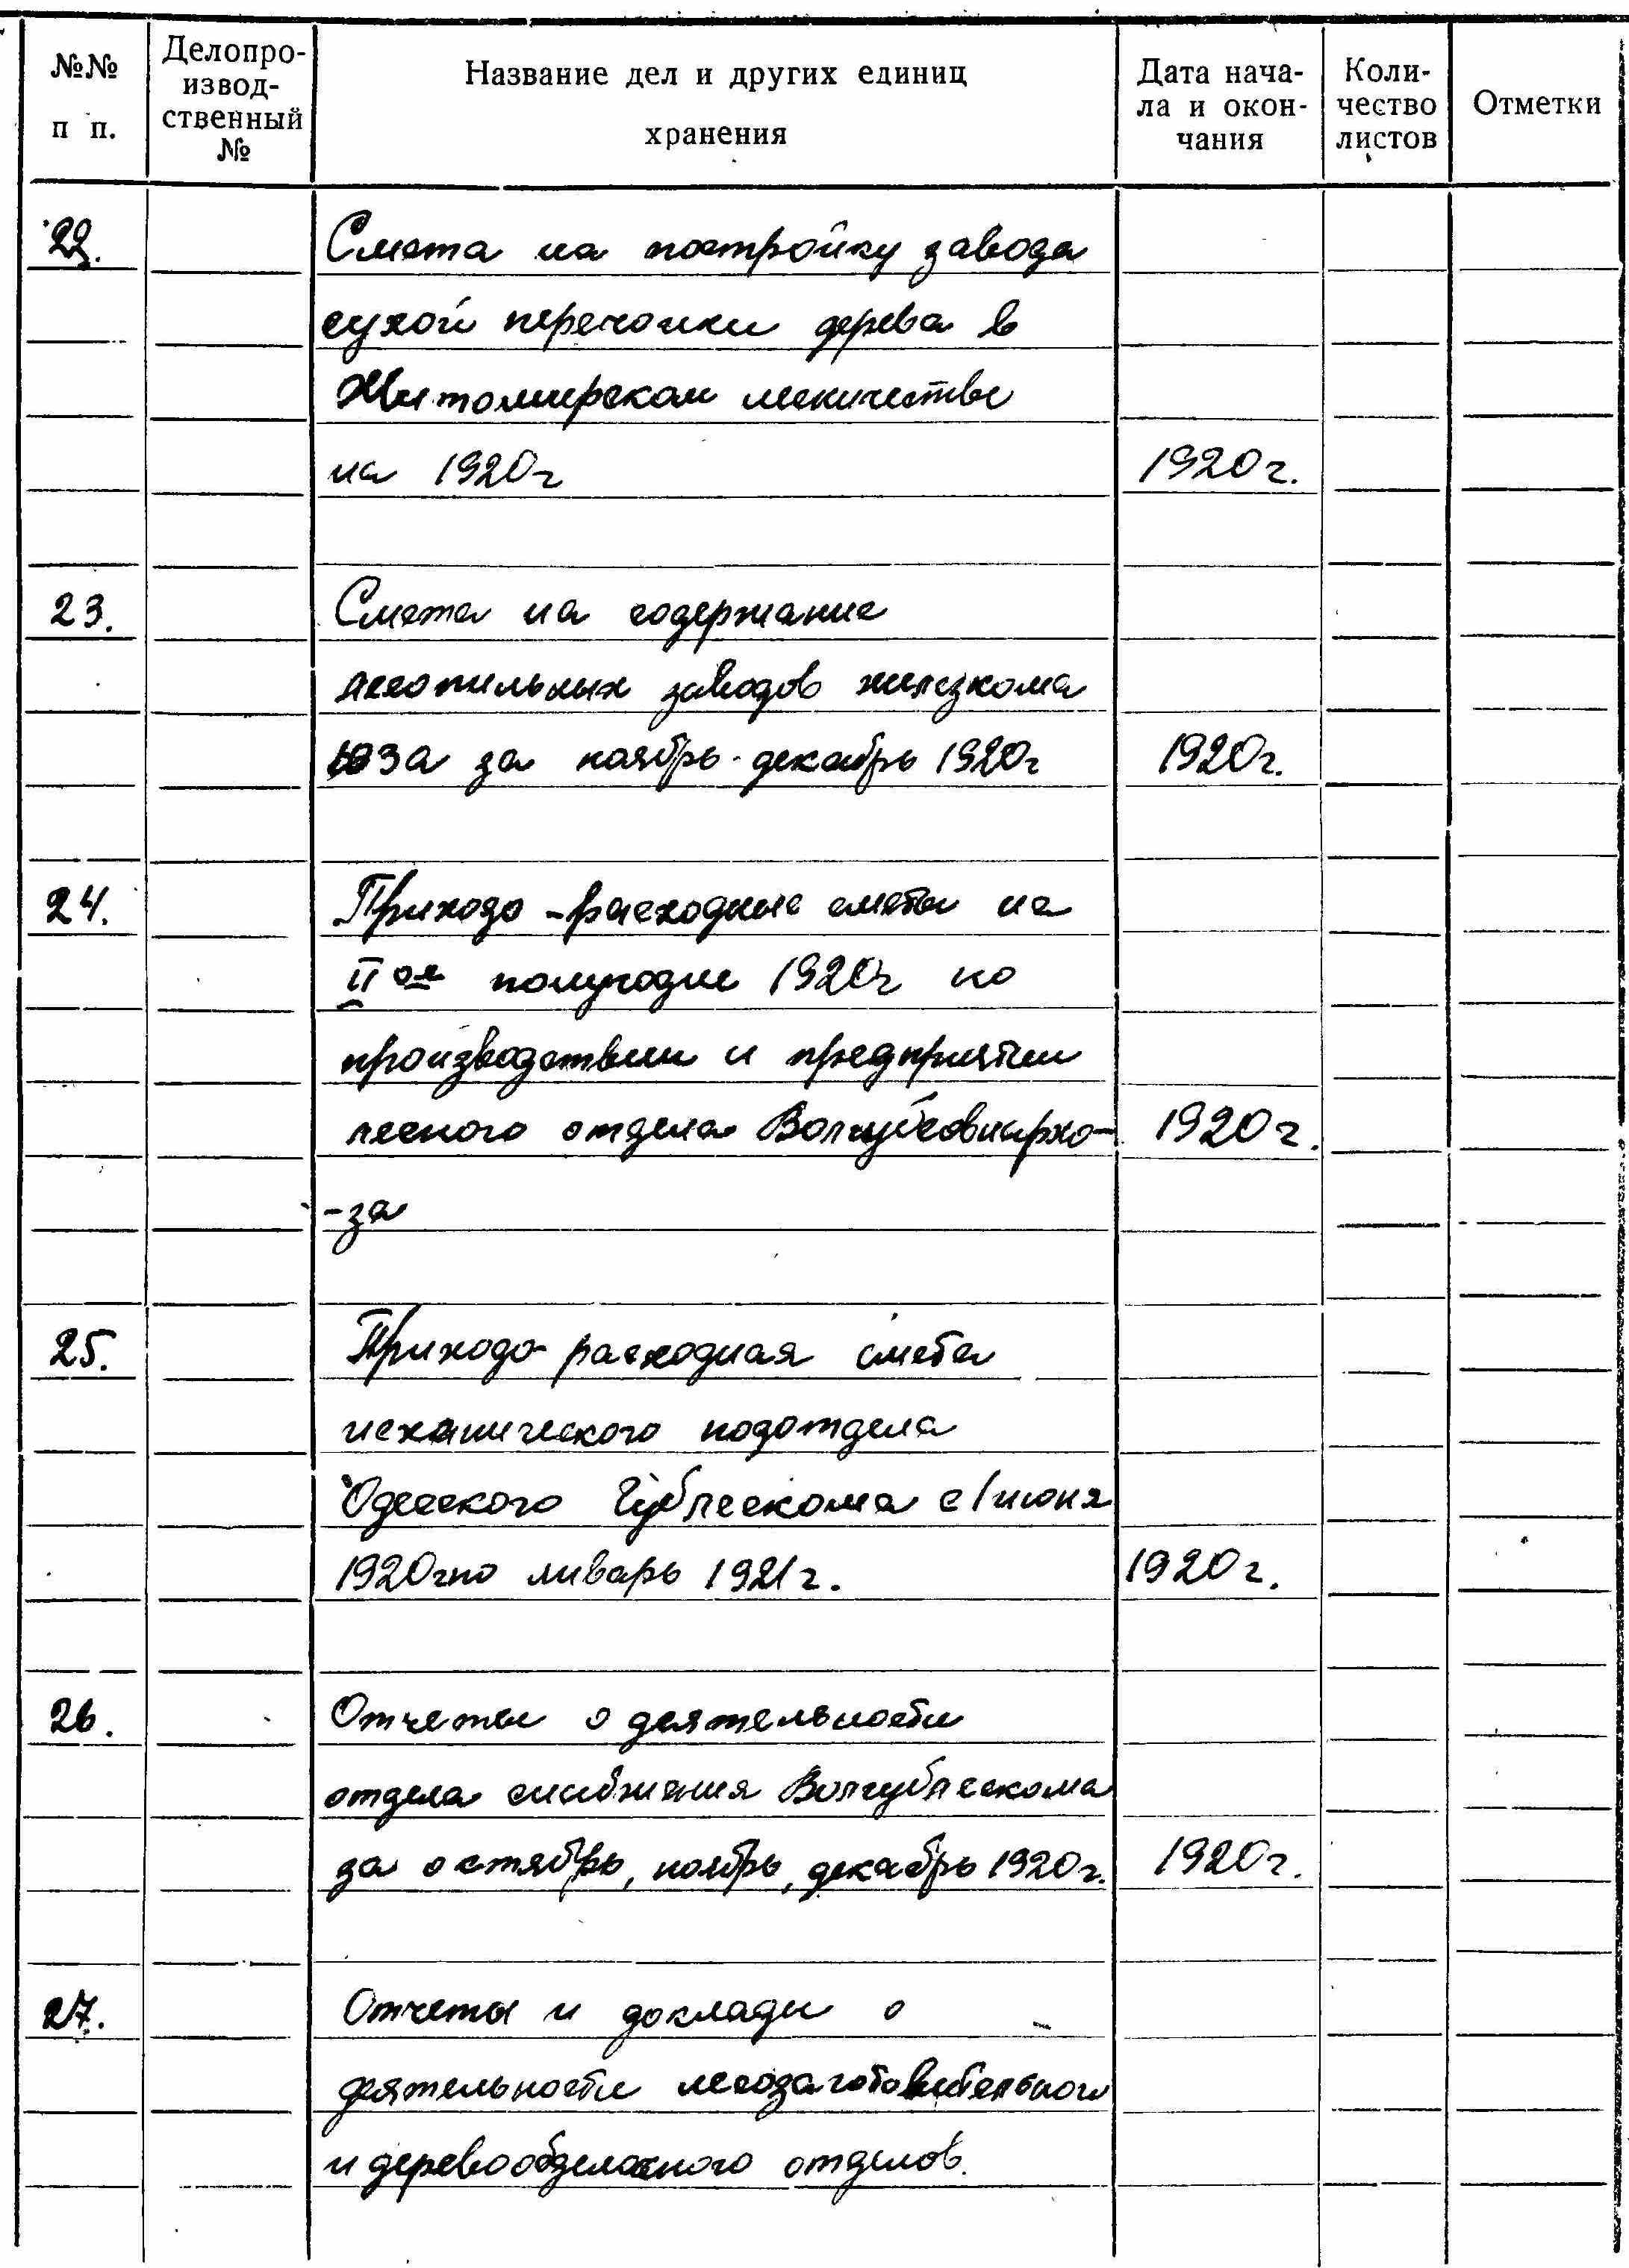 №№ п п.
Делопро-
извод-
ственный
№
Название дел и других единиц
хранения
Дата нача-
ла и окон-
чания
Коли-
чество
листов
Отметки
22. Смета на постройку завода
сухой перегонки дерева в
Житомирском лесничестве
на 1920г 1920г.
23. Смета на содержание
лесопильных заводов желескома
ЮЗА за ноябрь-декабрь 1920г 1920г.
24. Приходо-расходные сметы на
II ое полугодие 1920г по
производствам и предприятии
лесного отдела Волгубсовнархо- 1920г.
-за
25. Приходо-расходная смета
механического подотдела
Одесского Гублескома с 1 июня
1920г по январь 1921г. 1920г.
26. Отчеты о деятельности
отдела снабжения Волгублескома
за октябрь, ноябрь, декабрь 1920г. 1920г.
27. Отчеты и доклады о
деятельности лесозаготовительного
и деревообделочного отделов.